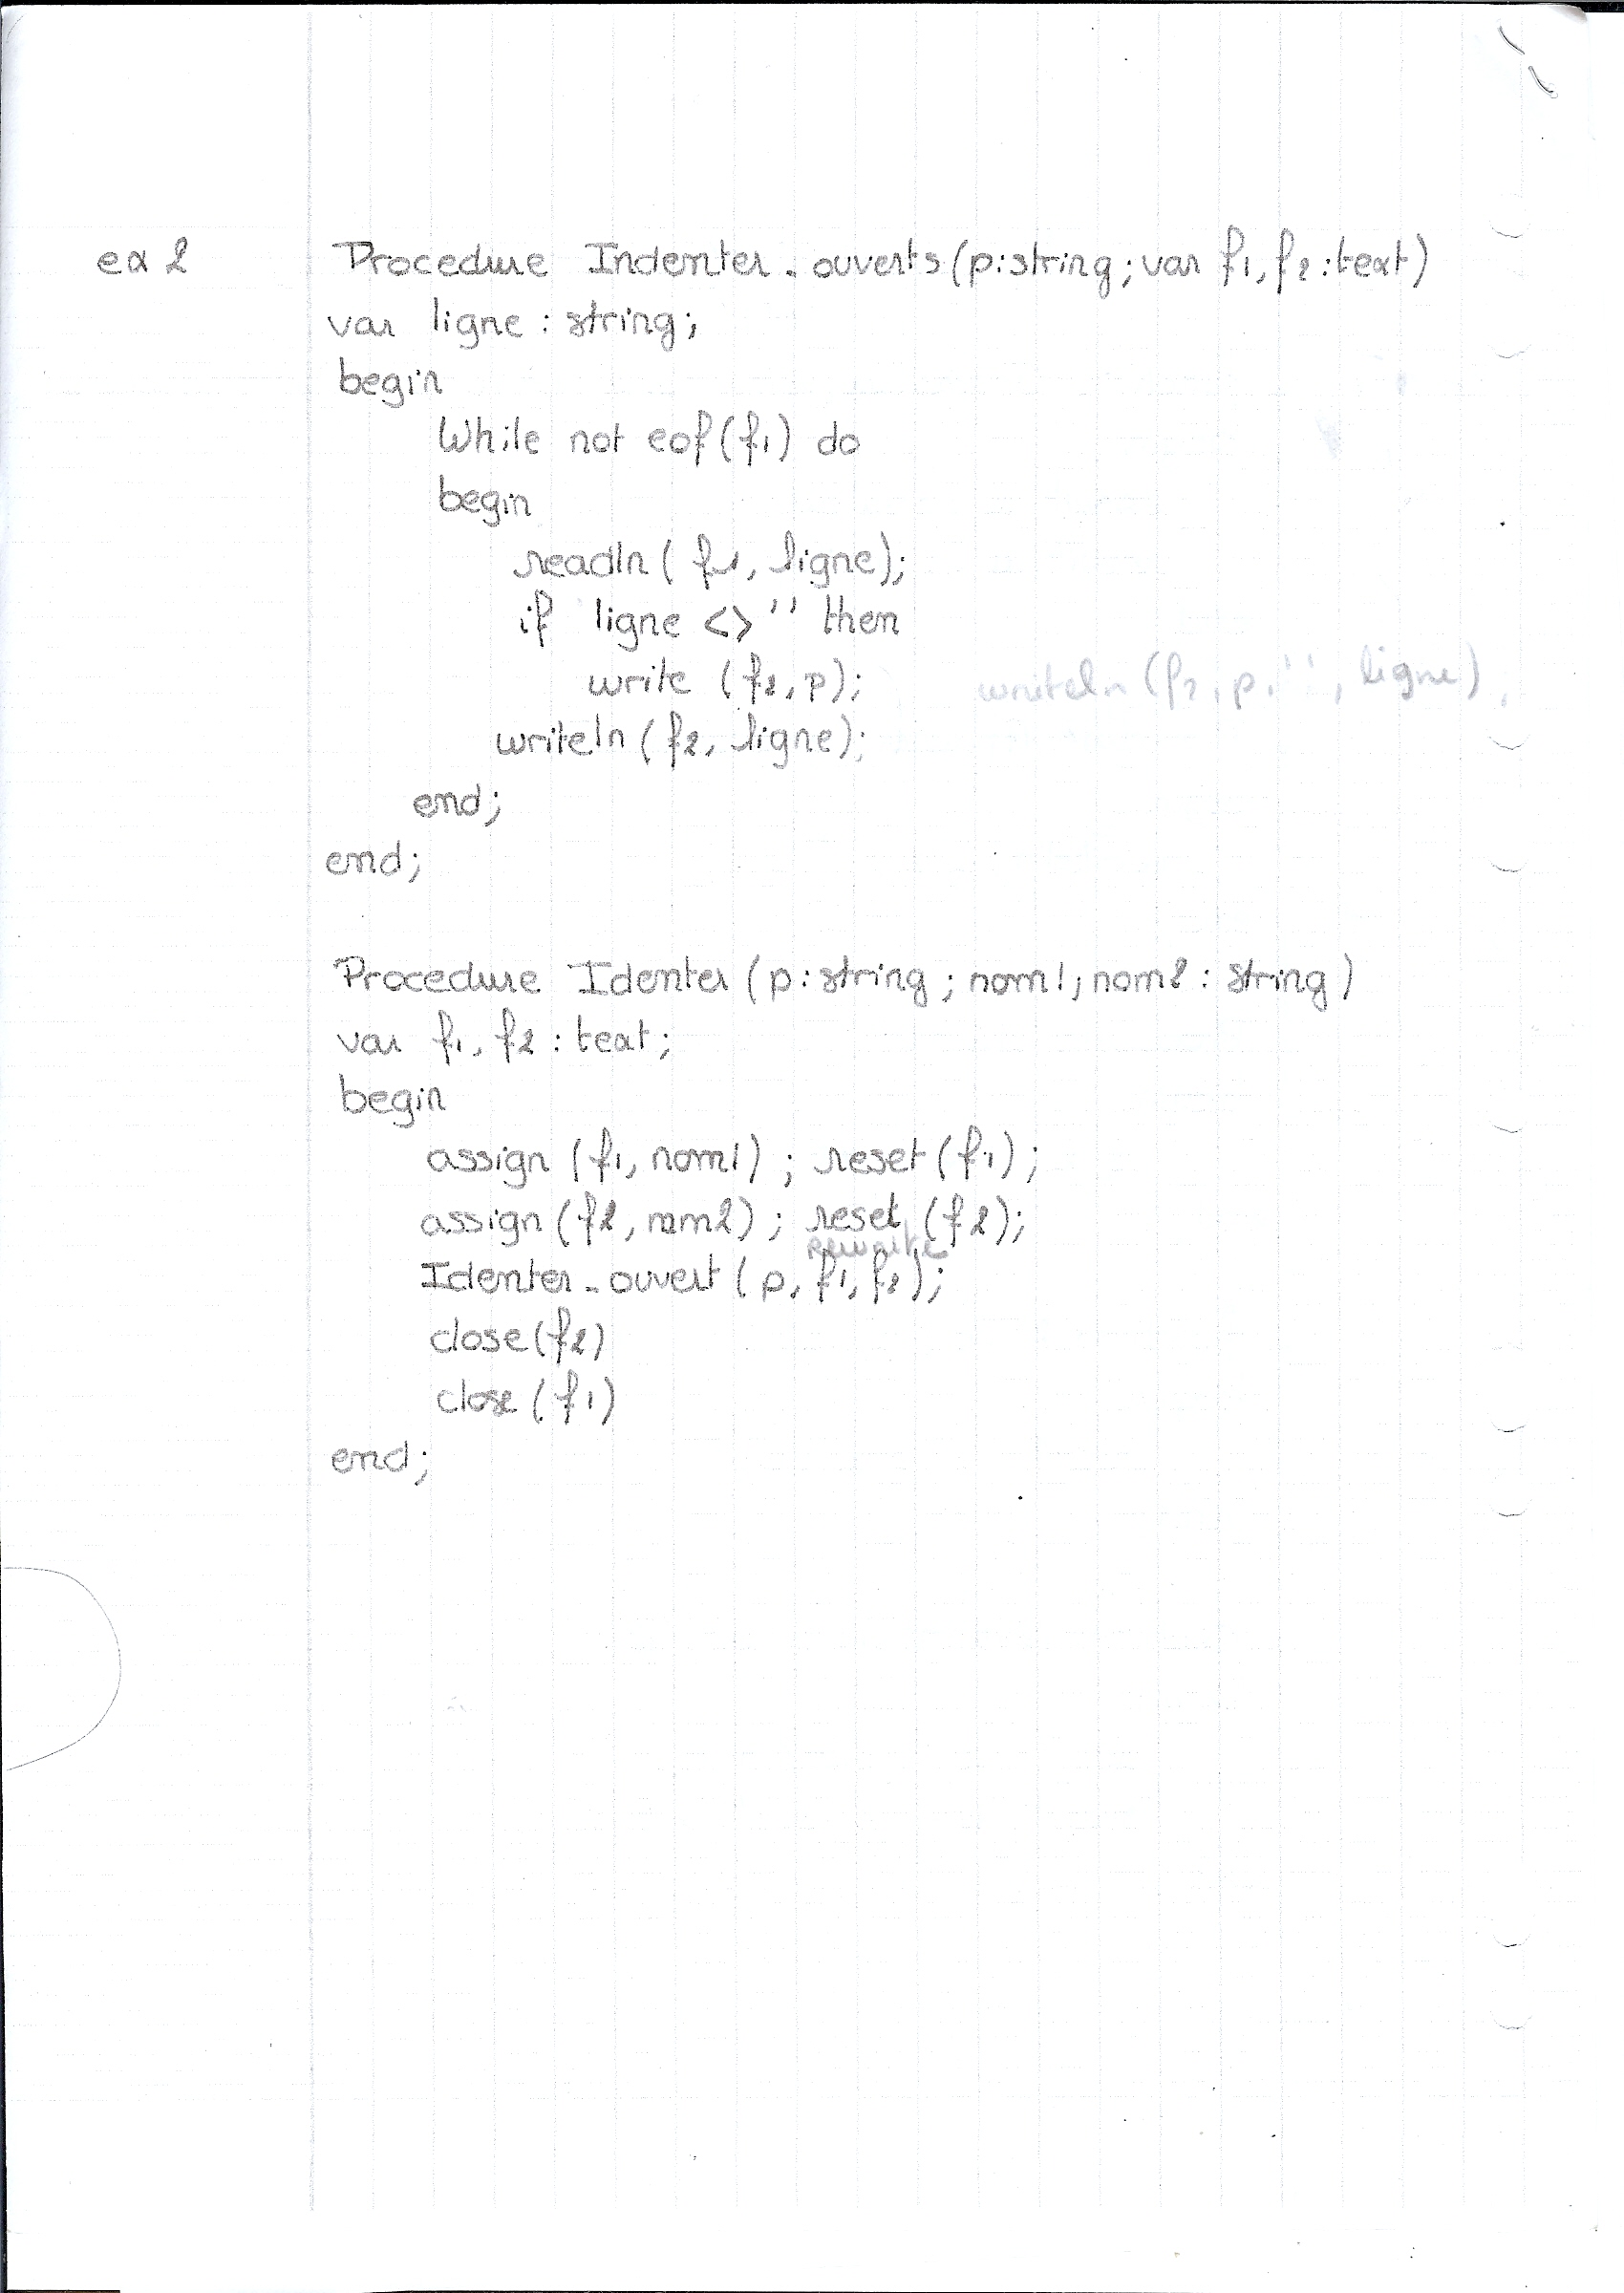 ex 2 Procedure Indenter_ouverts(p:string; var f1, f2 : text)
var ligne : string;
begin
While not eof(f1) do
begin
readln( f1, ligne);
if ligne <> '' then
write (f2, p); writeln (f2, p, '', ligne),
writeln (f2, ligne);
end;
end;
Procedure Identer (p : string ; nom1; nom2 : string)
var f1, f2 : text;
begin
assign (f1, nom1) ; reset (f1) ;
assign (f2, nom2) ; reset (f2);
rewrite
Identer_ouvert ( p, f1, f2);
close (f2)
close (f1)
end;